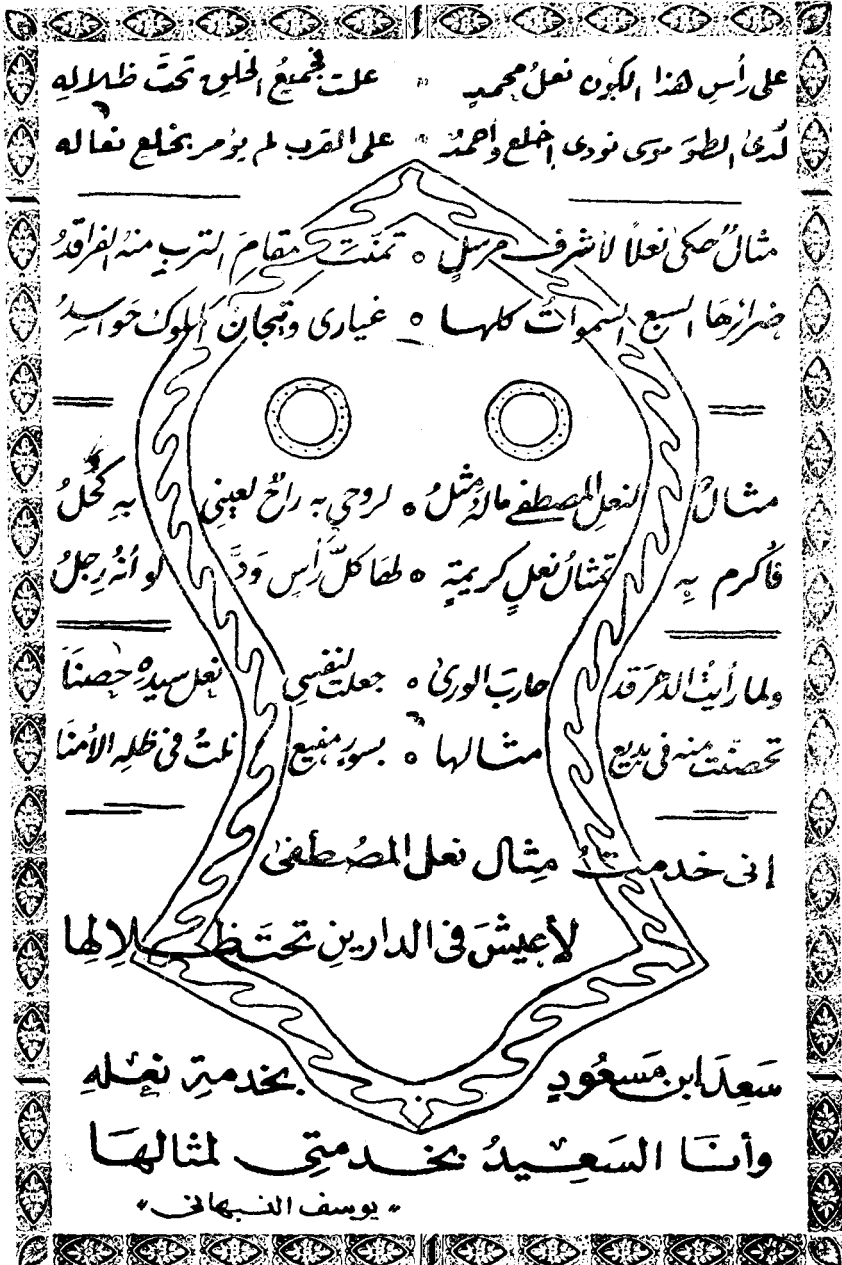 على رأس هذا الكون نعل محمد ٭ علت فجميع الخلق تحت ظلاله
لدى الطور موسى نودي اخلع وأحمد ٭ على القرب لم يؤمر بخلع نعاله
مثال حكى نعلا لأشرف مرسل ٥ تمنت مقام الترب منه الفراقد
ضرائرها السبع السموات كلها ٥ غيارى وتيجان الملوك حواسد
مثال لنعل المصطفى ماله مثل ٥ لروحي به راح لعيني به كحل
فأكرم به تمثال نعل كريمة ٥ لها كل رأس ود لو أنه رجل
ولما رأيت الدهر قد حارب الورى ٥ جعلت لنفسي نعل سيده حصنا
تحصنت منه في بديع مثالها ٥ بسور منيع نلت في ظله الأمنا
إنى خدمت مثال نعل المصطفى
لأعيش في الدارين تحت ظلالها
سعد ابن مسعود بخدمة نعله
وأنا السعيد بخدمتي لمثالها
" يوسف النبهاني "